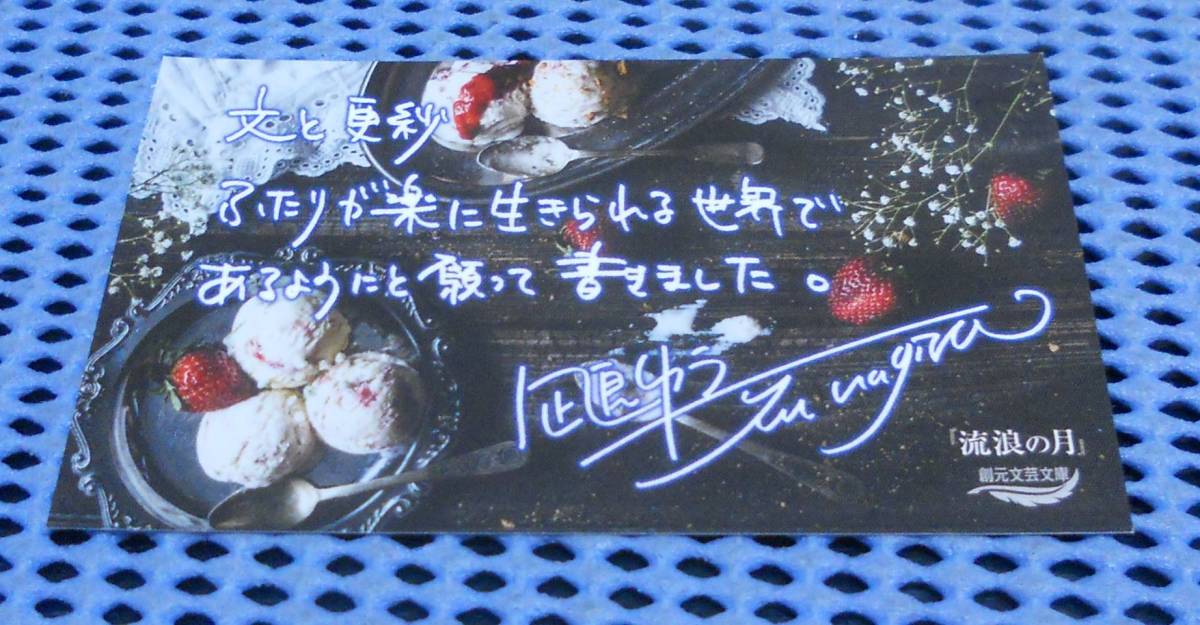 文と更紗
ふたりが楽に生きられる世界で
あるようにと願って書きました。
凪良ゆう Yuu nagira
『流浪の月』
創元文芸文庫